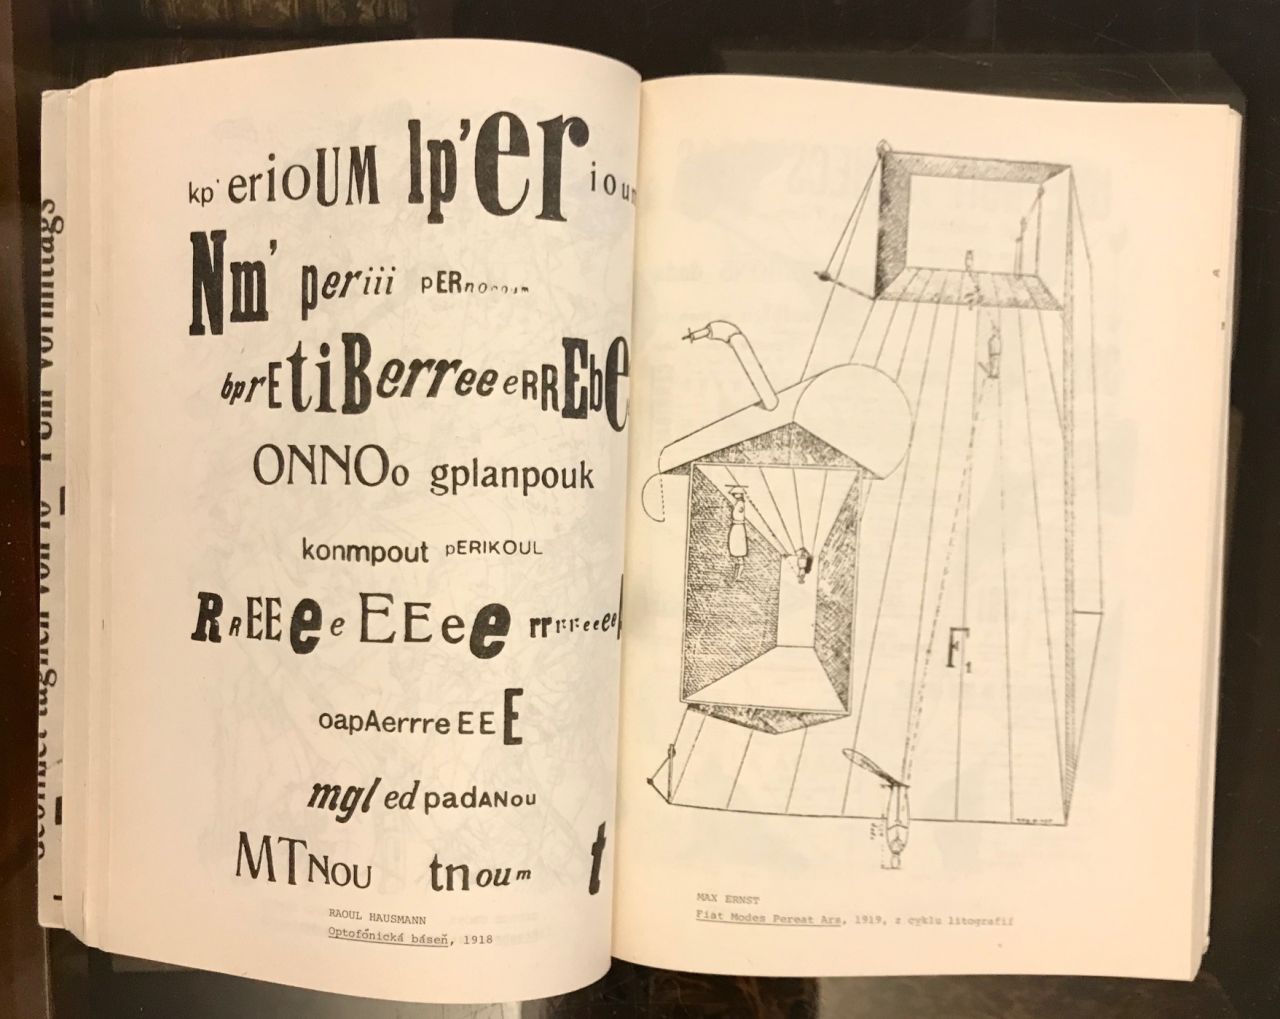 kp' erioUM lp'er iou
Nm' periii pERnoooum
bprEtiBerree eRREbe
ONNOo gplanpouk
konmpout pERIKOUL
RREEe e EEee rrrreeee
oapAerrre EE E
mgl ed padANou
MTNou tnoum t
RAOUL HAUSMANN
Optofónická báseň, 1918
F1
MAX ERNST
Fiat Modes Pereat Ars, 1919, z cyklu litografií
vormittags